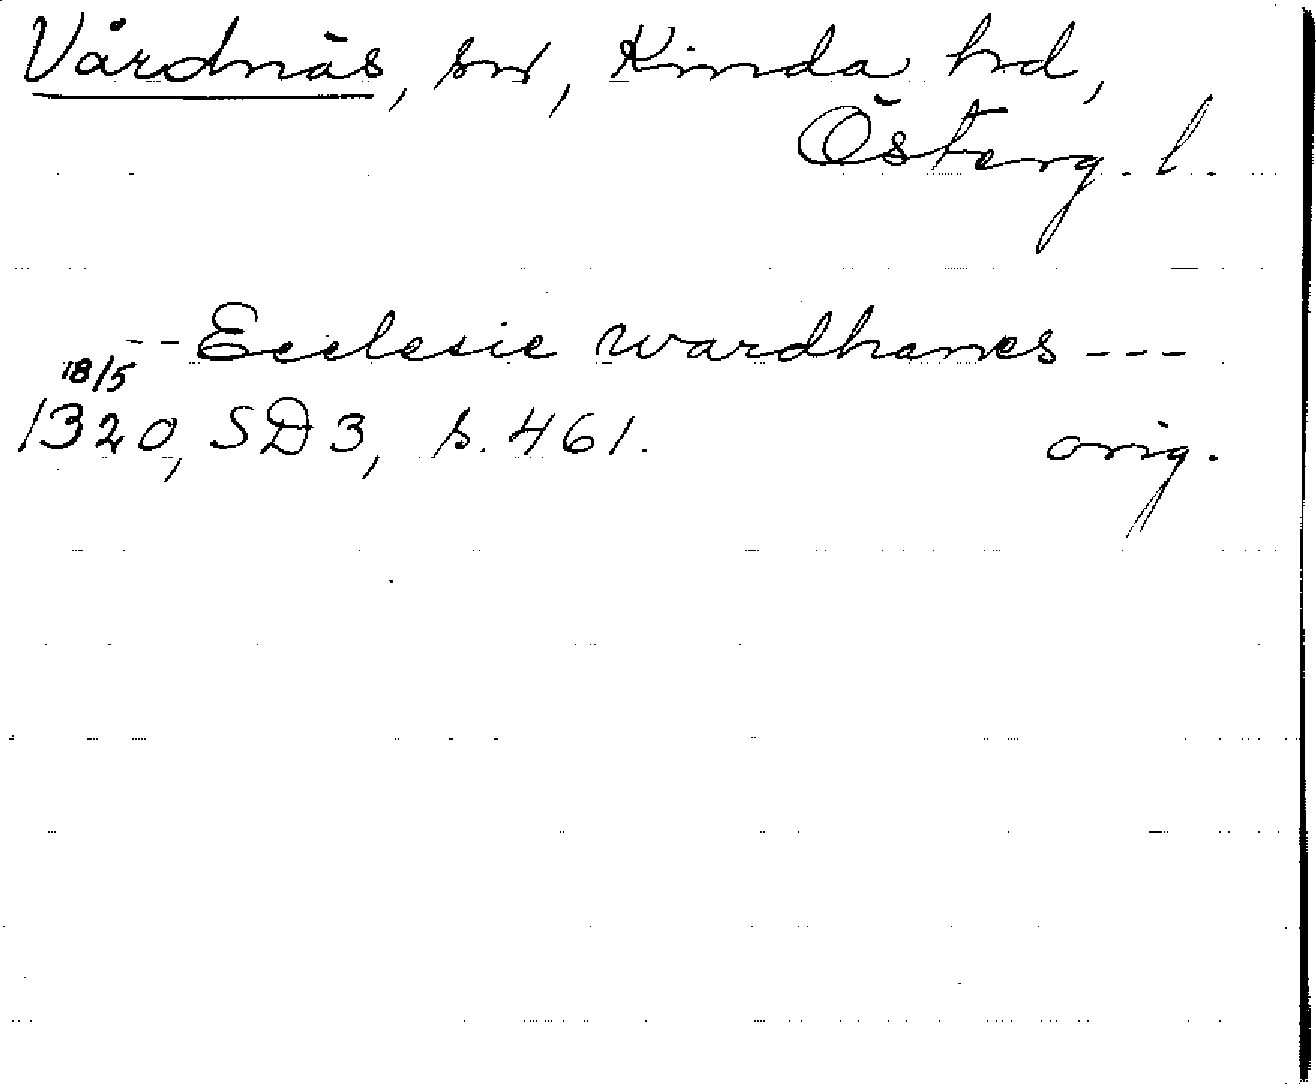 Vårdnäs, sn, Kinda hd,
Österg. l.
-- Ecclesie wardhanes ---
18/5
1320, SD 3, s. 461. orig.